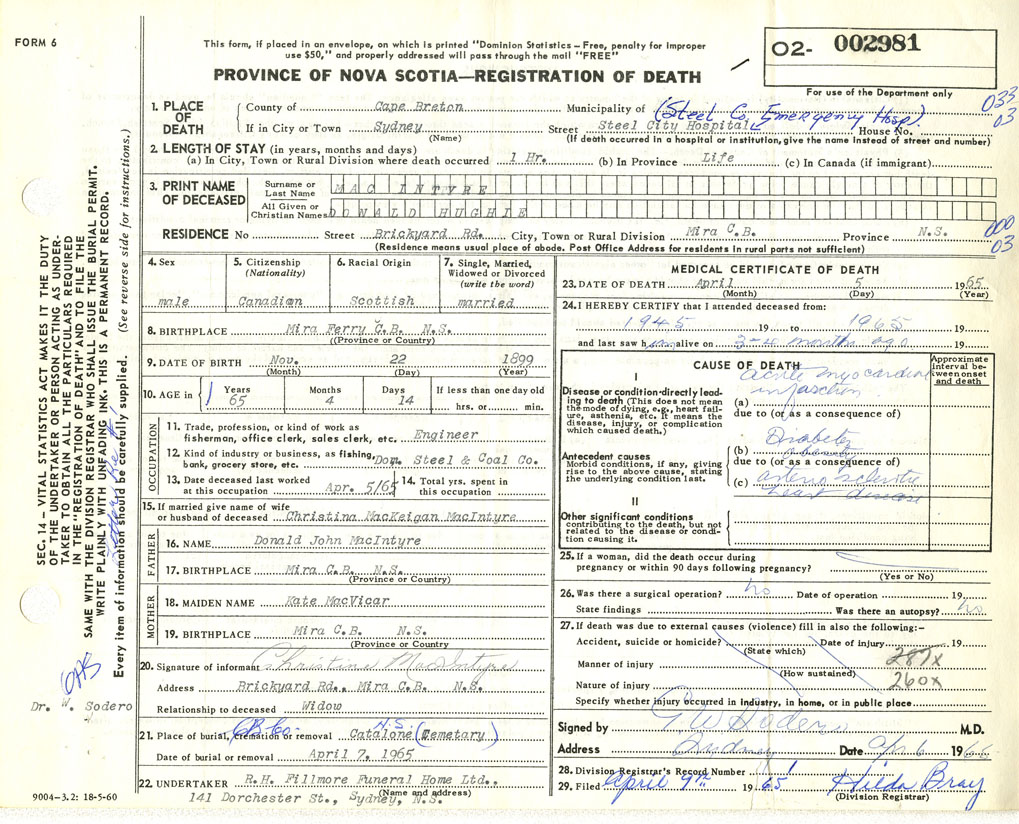 FORM 6
This form, if placed in an envelope, on which is printed "Dominion Statistics – Free, penalty for improper
use $50," and properly addressed will pass through the mail "FREE"
O2- 002981
For use of the Department only
PROVINCE OF NOVA SCOTIA—REGISTRATION OF DEATH
033
03
1. PLACE OF DEATH
County of Cape Breton Municipality of (Steel Co. Emergency Hosp.)
If in City or Town Sydney Street Steel City Hospital House No.
(Name) (If death occurred in a hospital or institution, give the name instead of street and number)
2. LENGTH OF STAY (in years, months and days)
(a) In City, Town or Rural Division where death occurred 1 Hr. (b) In Province Life (c) In Canada (if immigrant)
3. PRINT NAME OF DECEASED
Surname or Last Name MAC INTYRE
All Given or Christian Names DONALD HUGHIE
RESIDENCE No Street Brickyard Rd. City, Town or Rural Division Mira C.B. Province N.S.
(Residence means usual place of abode. Post Office Address for residents in rural parts not sufficient)
000
03
4. Sex
male
5. Citizenship (Nationality)
Canadian
6. Racial Origin
Scottish
7. Single, Married, Widowed or Divorced (write the word)
married
8. BIRTHPLACE Mira Ferry C.B. N.S.
(Province or Country)
9. DATE OF BIRTH Nov. 22 1899
(Month) (Day) (Year)
10. AGE in
Years Months Days If less than one day old
65 4 14 hrs. or min.
OCCUPATION
11. Trade, profession, or kind of work as
fisherman, office clerk, sales clerk, etc. Engineer
12. Kind of industry or business, as fishing,
bank, grocery store, etc. Dom. Steel & Coal Co.
13. Date deceased last worked
at this occupation Apr. 5/65
14. Total yrs. spent in
this occupation
15. If married give name of wife
or husband of deceased Christina MacKeigan MacIntyre
FATHER
16. NAME Donald John MacIntyre
17. BIRTHPLACE Mira C.B. N.S.
(Province or Country)
MOTHER
18. MAIDEN NAME Kate MacVicar
19. BIRTHPLACE Mira C.B. N.S.
(Province or Country
20. Signature of informant Christine MacIntyre
Address Brickyard Rd., Mira C.B. N.S.
Relationship to deceased Widow
21. Place of burial, cremation or removal C.B. Co. Catalone N.S. (Cemetary)
Date of burial or removal April 7, 1965
22. UNDERTAKER R.H. Fillmore Funeral Home Ltd.,
(Name and address)
141 Dorchester St., Sydney, N.S.
MEDICAL CERTIFICATE OF DEATH
23. DATE OF DEATH April 5 1965
(Month) (Day) (Year)
24. I HEREBY CERTIFY that I attended deceased from:
1945 19 to 1965 19
and last saw him alive on 3-4 months ago 19
CAUSE OF DEATH
Approximate interval between onset and death
I
Disease or condition directly leading to death (This does not mean the mode of dying, e.g., heart failure, asthenia, etc. It means the disease, injury, or complication which caused death.)
(a) Acute myocardial infarction
due to (or as a consequence of)
Antecedent causes
Morbid conditions, if any, giving rise to the above cause, stating the underlying condition last.
(b) Diabetes obesity
due to (or as a consequence of)
(c) arterio sclerotic heart disease
II
Other significant conditions
contributing to the death, but not related to the disease or condition causing it.
25. If a woman, did the death occur during
pregnancy or within 90 days following pregnancy?
(Yes or No)
26. Was there a surgical operation? no Date of operation 19
State findings Was there an autopsy? no
27. If death was due to external causes (violence) fill in also the following:–
Accident, suicide or homicide? Date of injury 19
(State which)
287x
Manner of injury
(How sustained)
260x
Nature of injury
Specify whether injury occurred in industry, in home, or in public place
Signed by G W Sodero M.D.
Address Sydney Date Apr 6 1966
28. Division Registrar's Record Number 1
29. Filed April 9th 1965 Hilda Bray
(Division Registrar)
SEC. 14 – VITAL STATISTICS ACT MAKES IT THE DUTY
OF THE UNDERTAKER OR PERSON ACTING AS UNDER-
TAKER TO OBTAIN ALL THE PARTICULARS REQUIRED
IN THE "REGISTRATION OF DEATH" AND TO FILE THE
SAME WITH THE DIVISION REGISTRAR WHO SHALL ISSUE THE BURIAL PERMIT.
WRITE PLAINLY WITH UNFADING INK. THIS IS A PERMANENT RECORD.
Every item of information should be carefully supplied. (See reverse side for instructions.)
Dr. W. Sodero
9004–3.2: 18-5-60